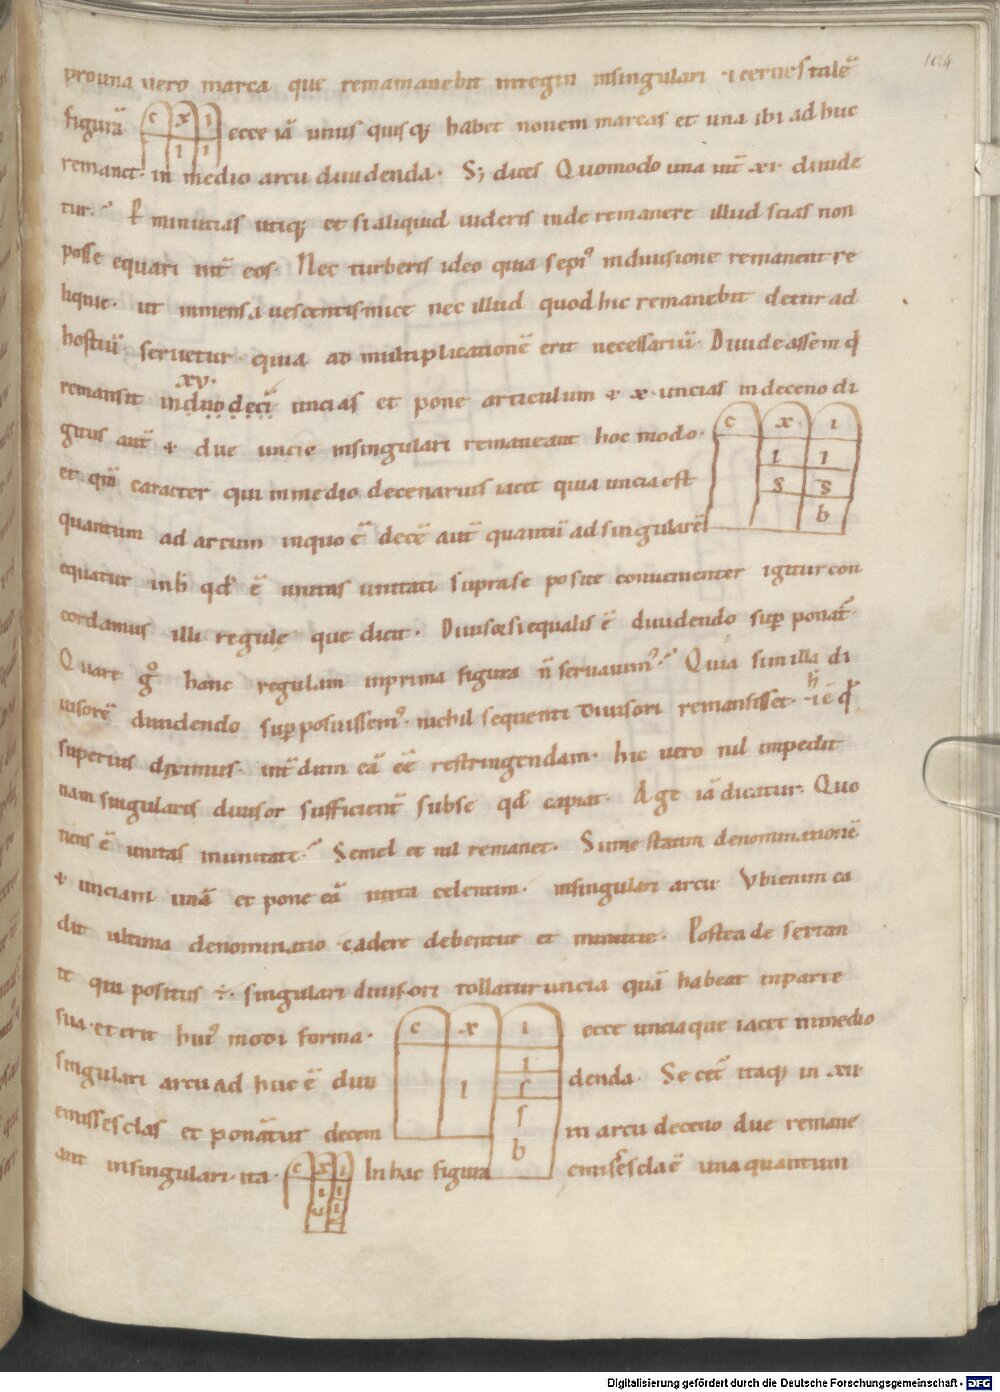 104
pro una vero marca que remamanebit integin insingulari · i cernes talē
figurā c x i ecce iā unus quisq; habet novem marcas et una ibi ad huc
i i
remanet · in medio arcu dividenda · S; dices Quomodo una int̄ xi · divide
tur · P minutias utiq; et si aliquid videris inde remanere illud scias non
posse equari int̄ eos · Nec turberis ideo quia sepi' indivisione remanent re
liquie · ut inmensa vescentis mice nec illud quod hic remanebit detur ad
hostiū · servetur · quia ad multiplicationē erit necessariū · Divide assem q̄
xv·
remansit in duodeci uncias et pone articulum · x · uncias indeceno di
gitus aut̄ due uncie insingulari remaneant hoc modo · c x i
i i
et qm̄ caracter qui inmedio decenarius iacet quia uncia est s s
b
quantum ad arcum inquo ē decē aut̄ quantū ad singularē
equatur inb qd' ē unitas unitati suprase posite convenienter igitur con
cordamus illi regule que dicit · Divisor si equalis ē dividendo sup ponat̄
Quare g° hanc regulam inprima figura n̄ servavim' · Quia sim illa di
h
visorē dividendo sup posuissem' · nichil sequenti divisori remansisset · iē q̄
superius diximus · int̄dum eā eē restringendam · hic vero nil impedit
nam singularis divisor sufficient̄ subse qd' capiat · Age iā dicatur · Quo
tiens ē unitas inunitate · Semel et nil remanet · Sume statim denominationē
unciam unā et pone eā intra celentim · insingulari arcu Ubi enim ca
dit ultima denominatio cadere debentur et minutie · Postea de sextan
te qui positus ÷ · singulari divisori tollatur uncia quā habeat inparte
sua · et erit hui' modi forma · c x i ecce uncia que iacet inmedio
i
singulari arcu ad huc ē divi i s denda · Secet̄ itaq; in xii·
s
emissesclas et ponātur decem in arcu deceno due remane
b
ant insingulari · ita · c x i In hac figura emisescla ē una quantum
i i